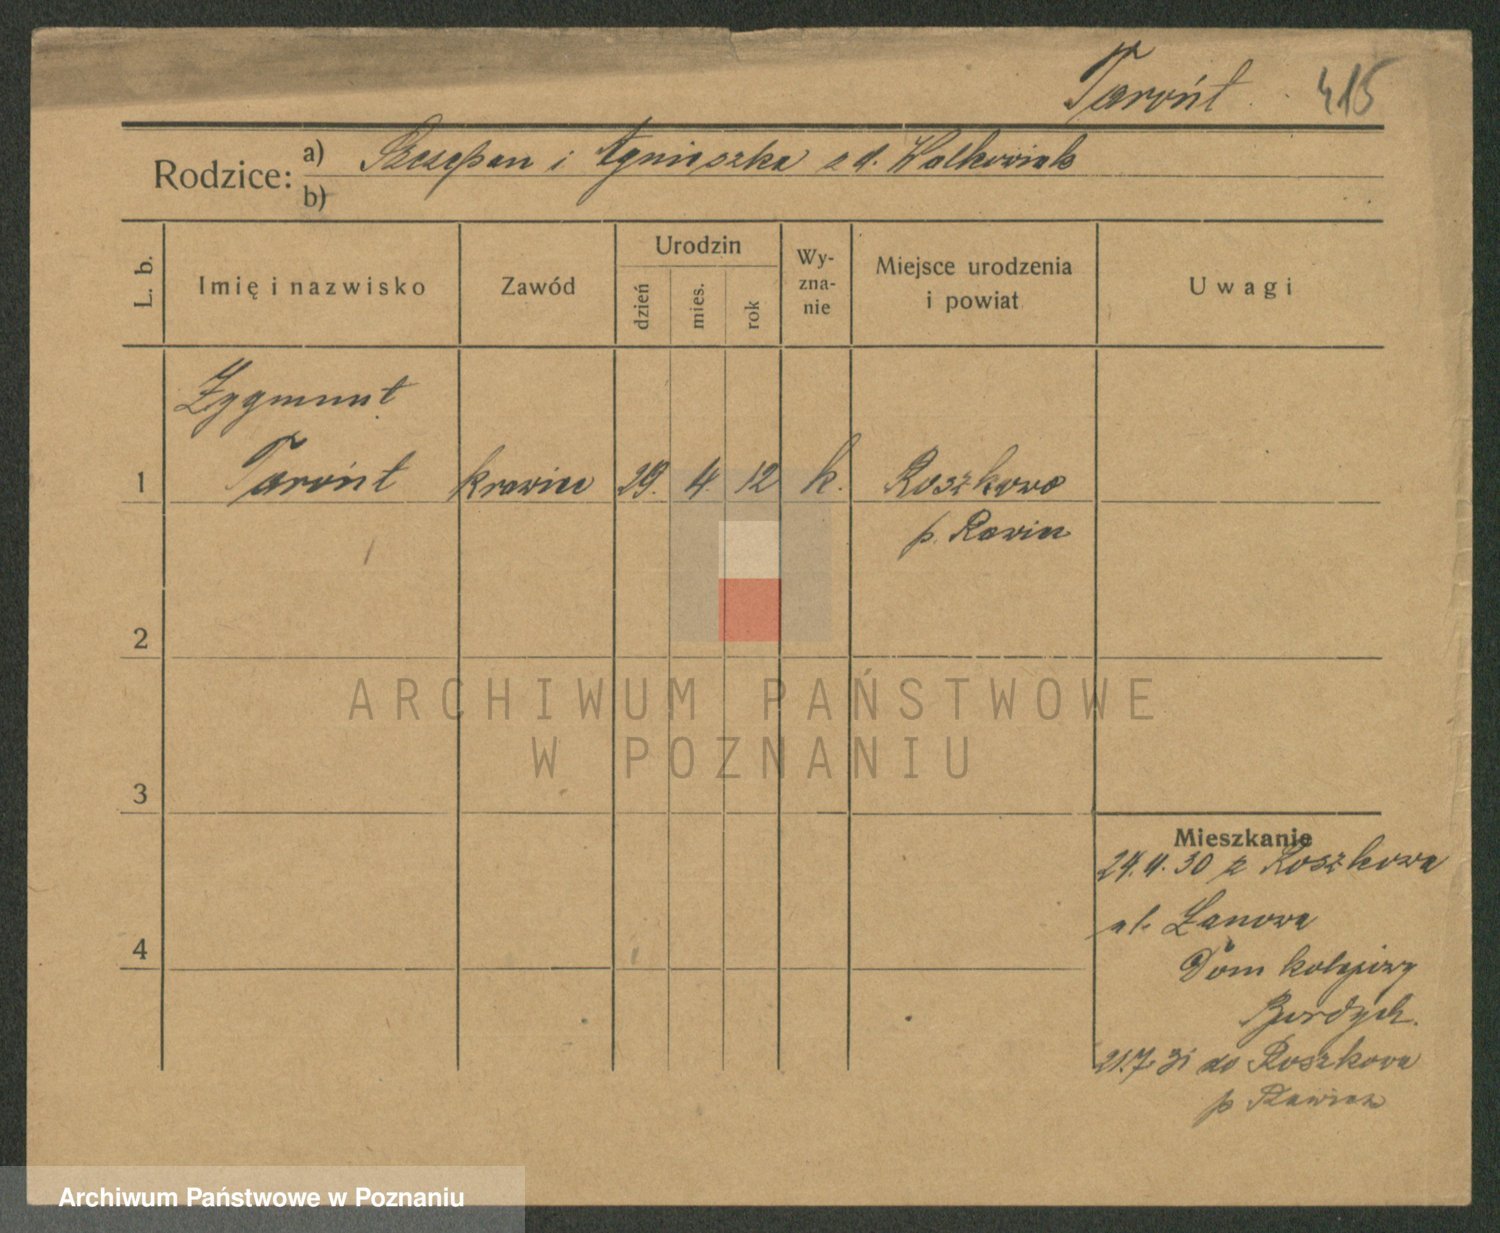 Tarońt 415
Rodzice: a) Szczepan i Agnieszka z d. Walkowiak
b)
L. b. Imię i nazwisko Zawód Urodzin dzień mies. rok Wy-zna-nie Miejsce urodzenia i powiat Uwagi
Zygmunt
1 Tarońt krawiec 29. 4. 12 k. Roszkowo
p. Rawicz
2
3
4
ARCHIWUM PAŃSTWOWE
W POZNANIU
Mieszkanie
24.4.30 z Roszkowa
ul. Łanowa
Dom kolejowy
21.7.31 do Roszkowa
p Rawicz
Archiwum Państwowe w Poznaniu